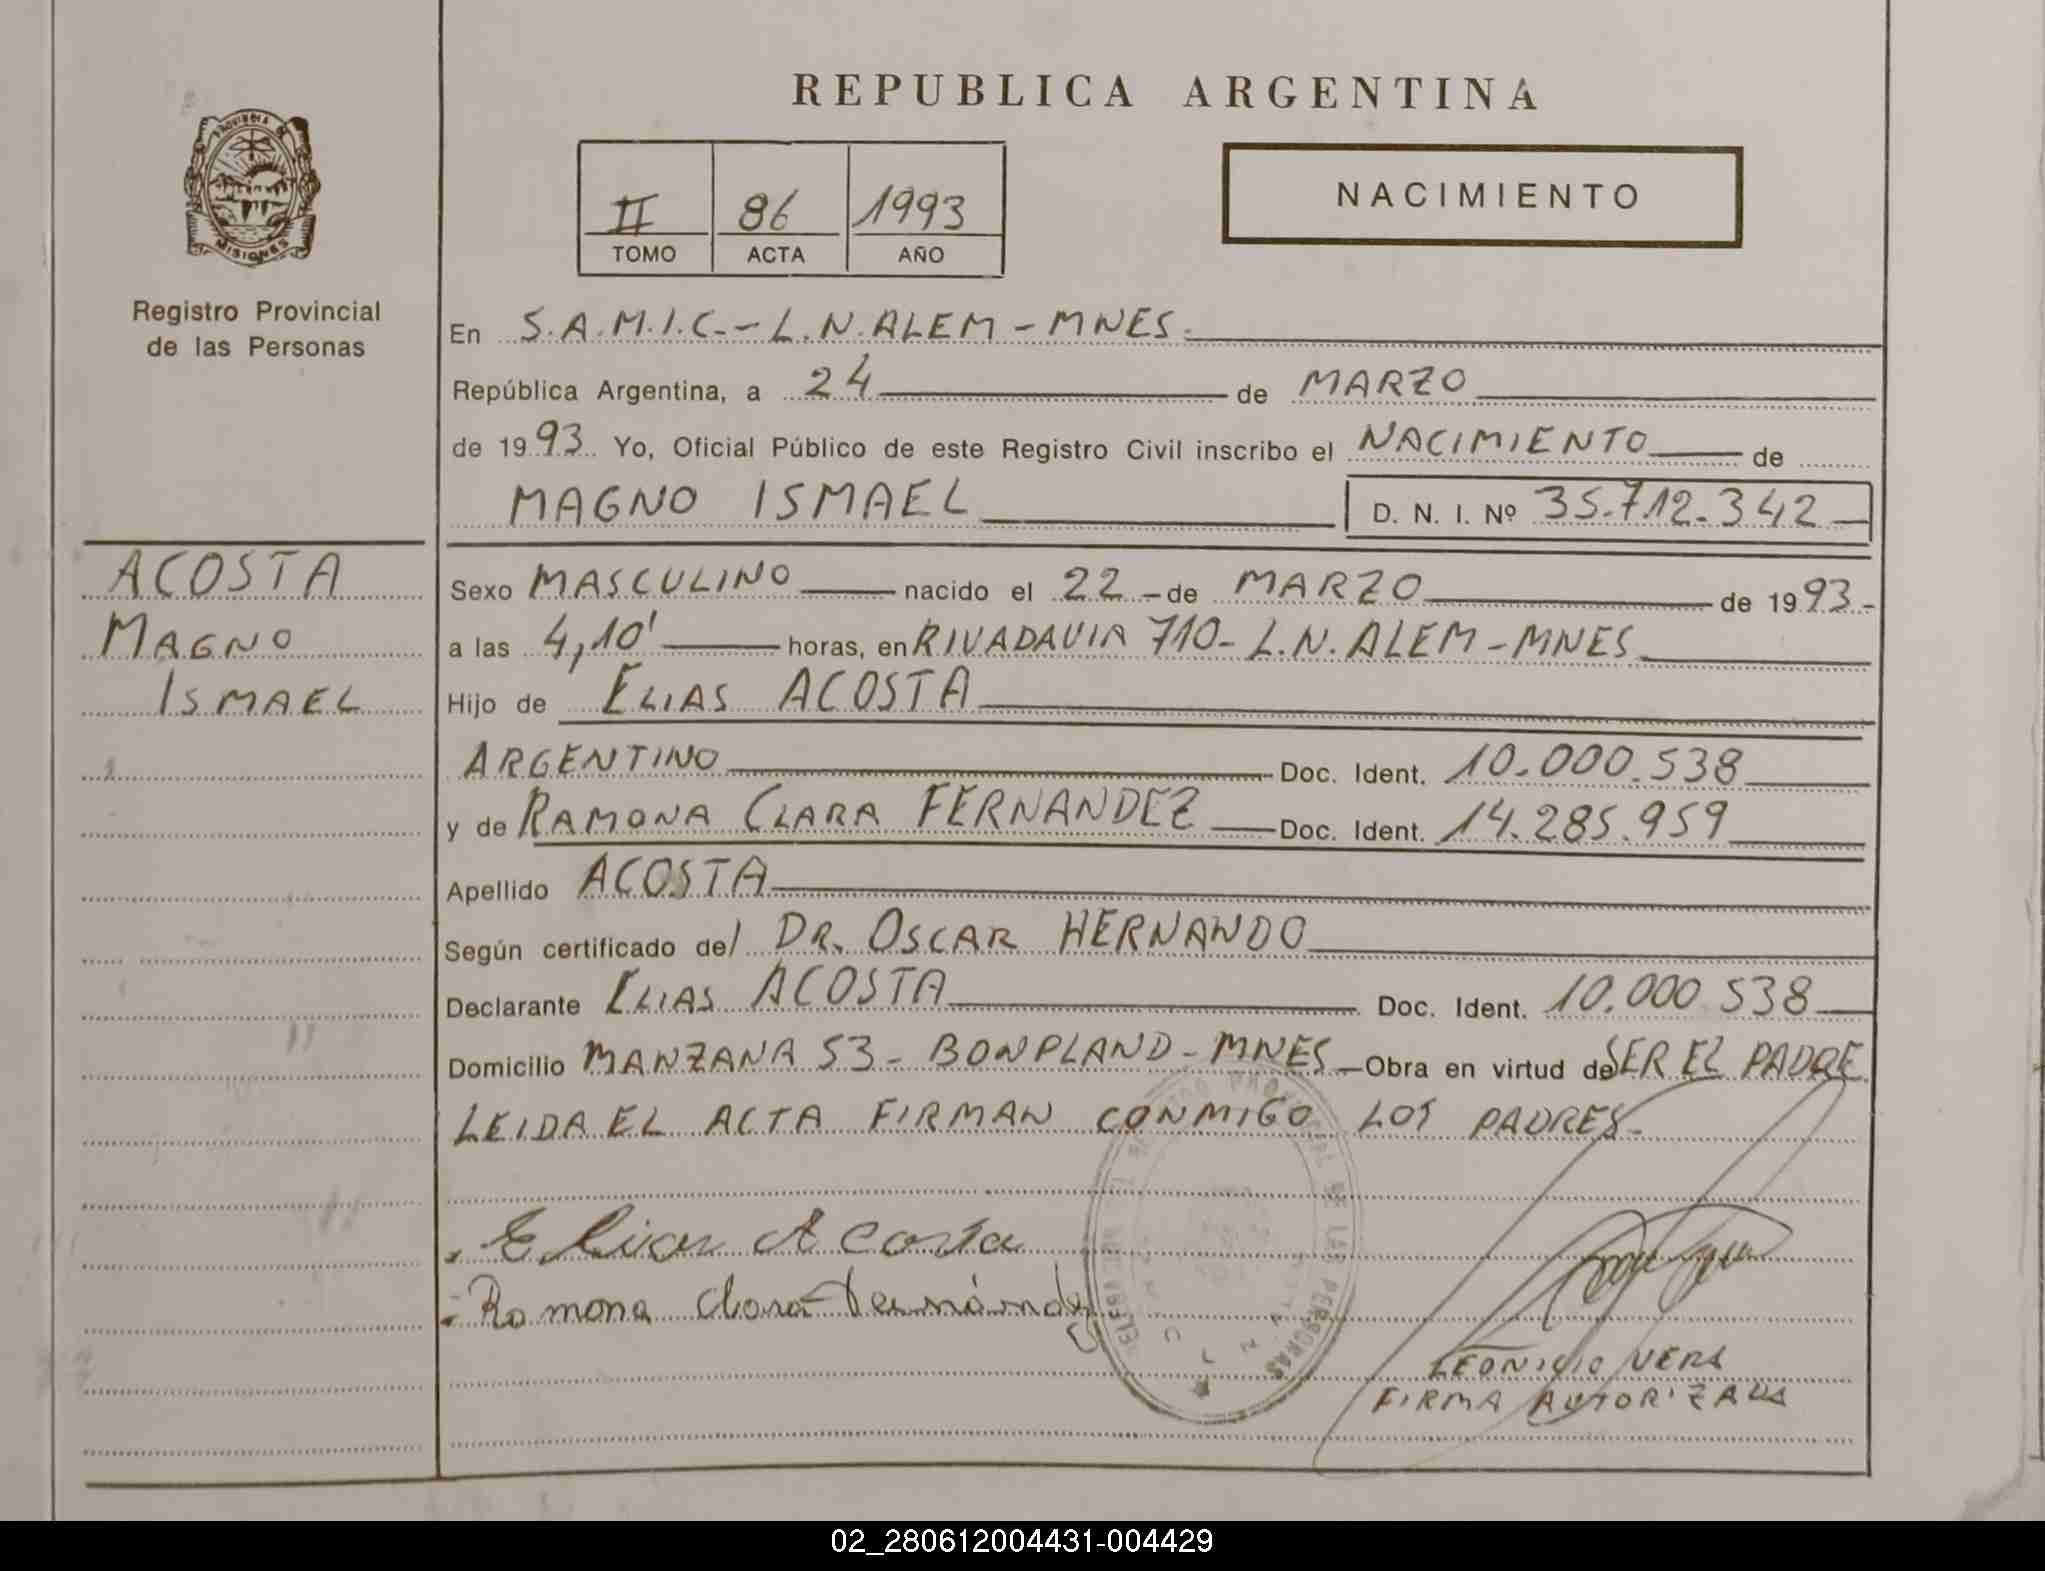 REPUBLICA ARGENTINA
PROVINCIA DE
MISIONES
Registro Provincial
de las Personas
II 86 1993
TOMO ACTA AÑO
NACIMIENTO
En S.A.M.I.C.-L.N.ALEM-MNES.
República Argentina, a 24 de MARZO
de 1993. Yo, Oficial Público de este Registro Civil inscribo el NACIMIENTO de
MAGNO ISMAEL D. N. I. Nº 35.712.342
ACOSTA
MAGNO
ISMAEL
Sexo MASCULINO nacido el 22 - de MARZO de 1993.-
a las 4,10' horas, en RIVADAVIA 710- L.N. ALEM-MNES
Hijo de ELIAS ACOSTA
ARGENTINO Doc. Ident. 10.000.538
y de RAMONA CLARA FERNANDEZ Doc. Ident. 14.285.959
Apellido ACOSTA
Según certificado del DR. OSCAR HERNANDO
Declarante ELIAS ACOSTA Doc. Ident. 10.000.538
Domicilio MANZANA 53 - BONPLAND - MNES - Obra en virtud de SER EL PADRE
LEIDA EL ACTA FIRMAN CONMIGO LOS PADRES.
Elias Acosta
Ramona Clara Fernández
PROVINCIAL DE LAS PERSONAS
VERA
FIRMA AUTORIZADA
02_280612004431-004429